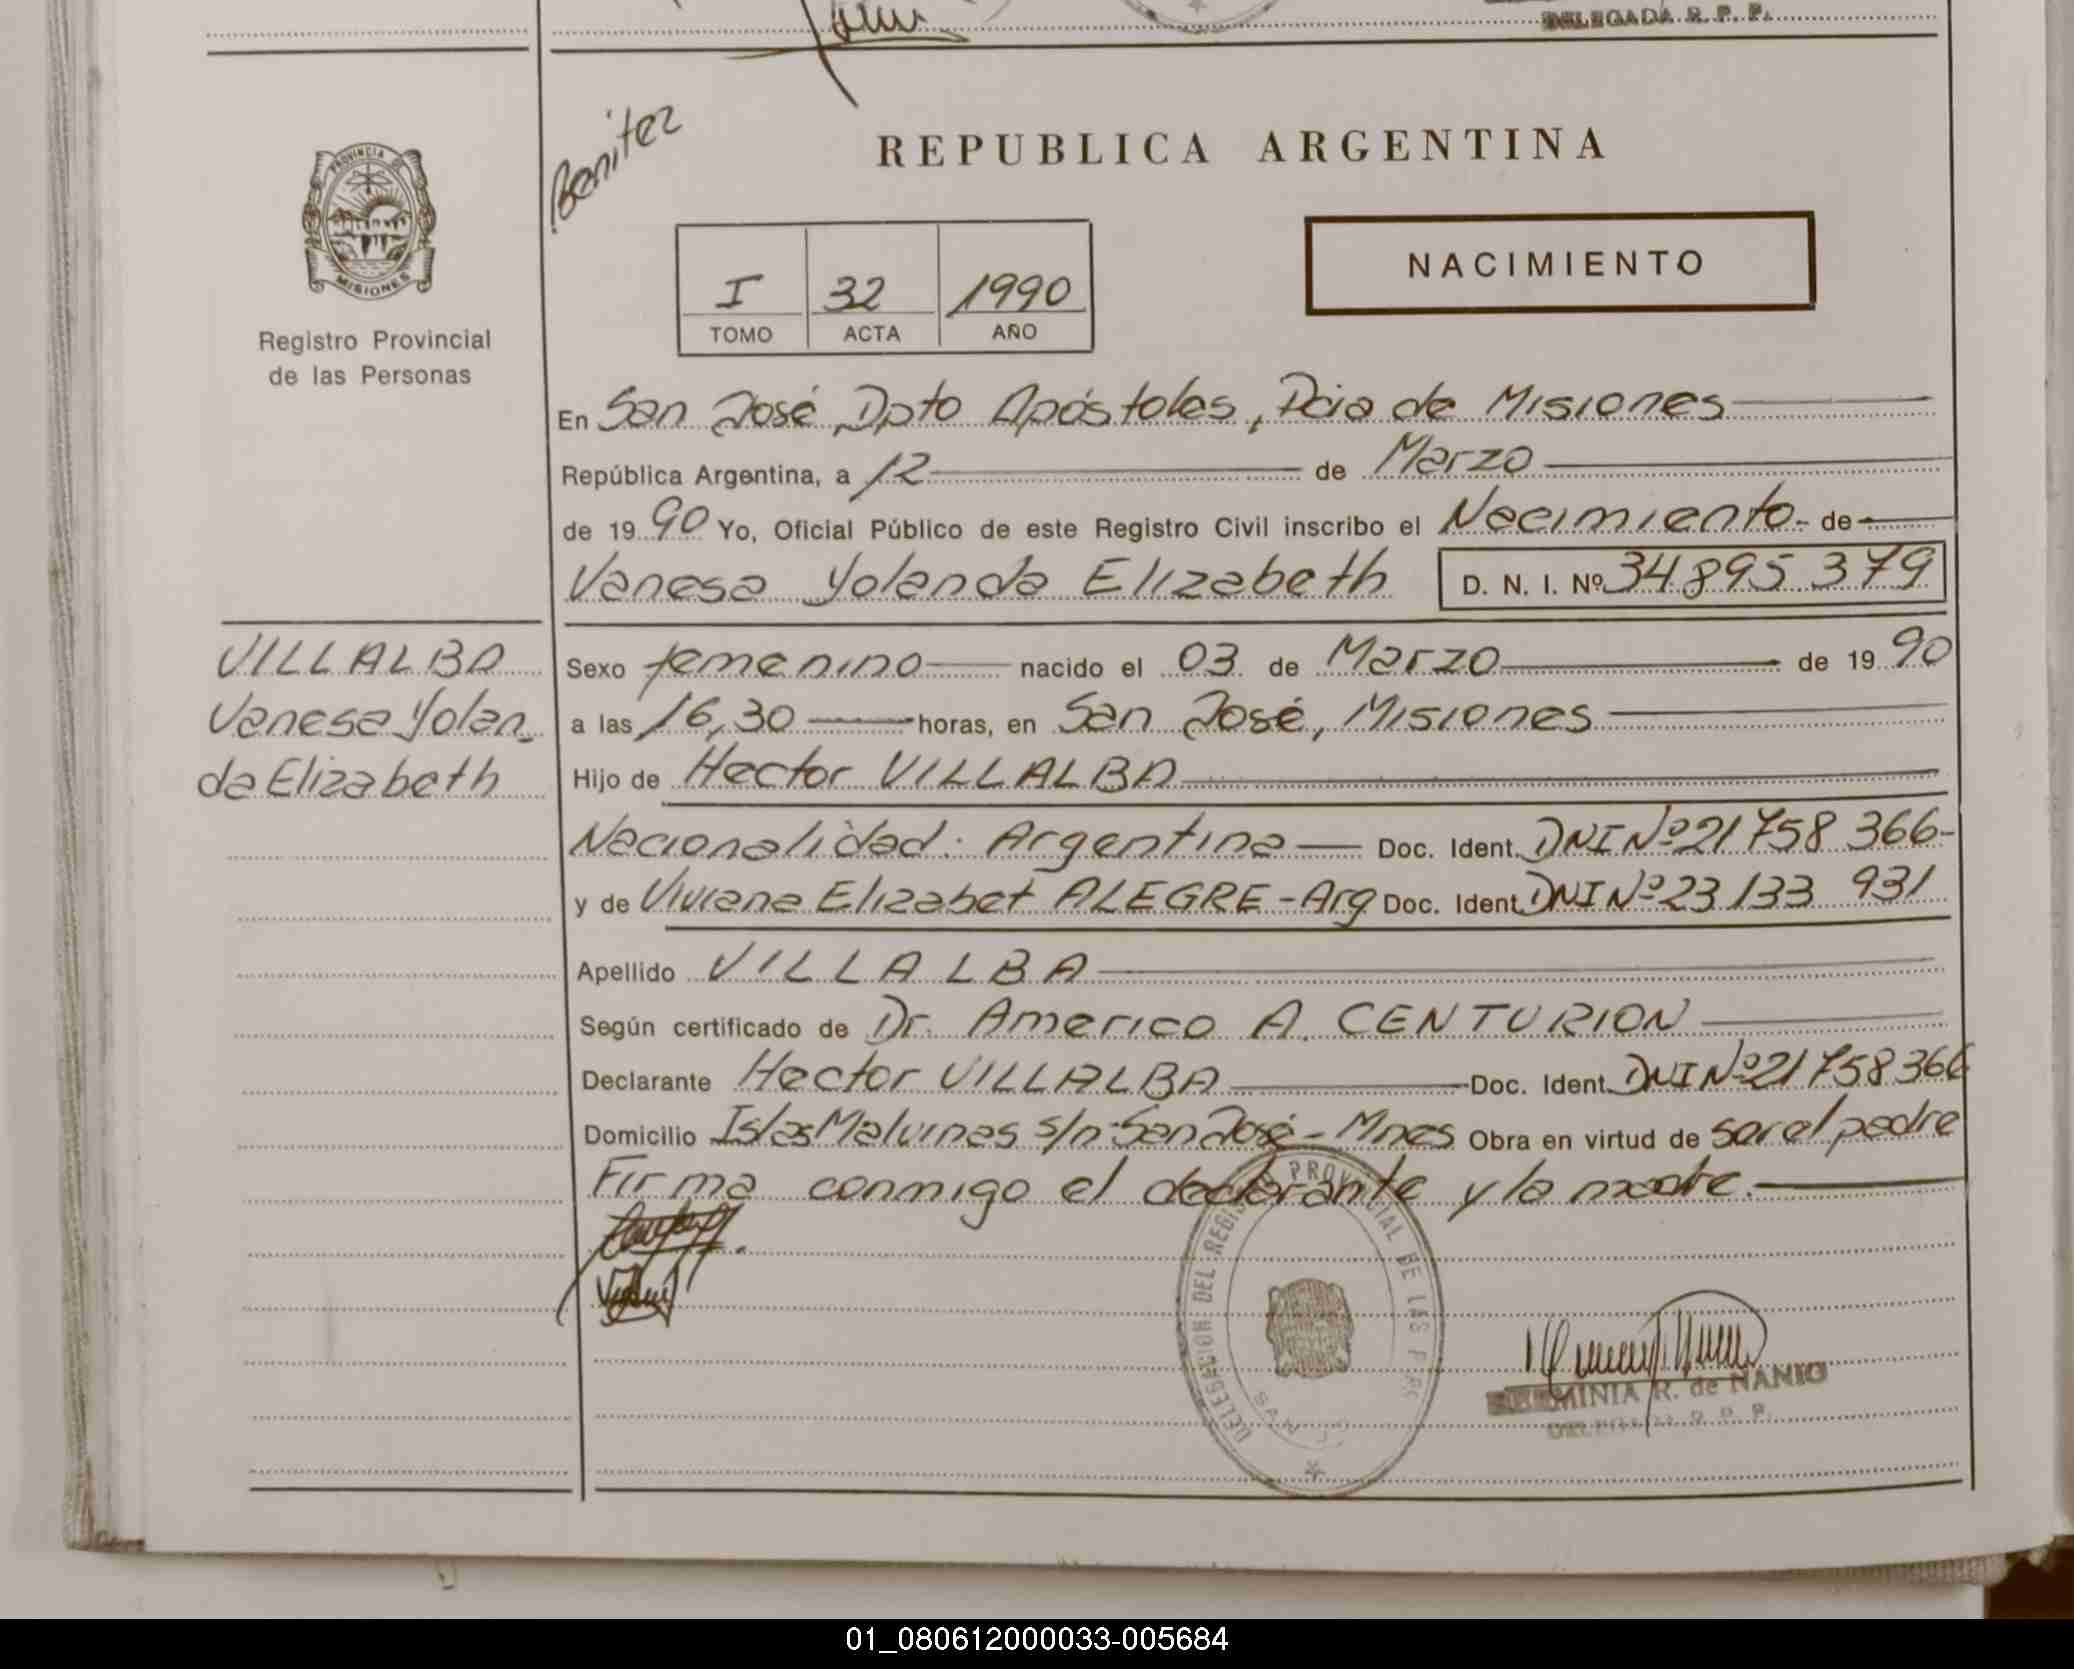 DELEGADA R. P. P.
Benitez
REPUBLICA ARGENTINA
PROVINCIA D
MISIONES
Registro Provincial
de las Personas
I 32 1990
TOMO ACTA AÑO
NACIMIENTO
En San José, Dpto Apóstoles, Pcia de Misiones
República Argentina, a 12 de Marzo
de 1990 Yo, Oficial Público de este Registro Civil inscribo el Nacimiento de
Vanesa Yolanda Elizabeth D. N. I. Nº 34895379
VILLALBA
Vanesa Yolan_
da Elizabeth
Sexo femenino nacido el 03 de Marzo de 1990
a las 16,30 horas, en San José, Misiones
Hijo de Hector VILLALBA
Nacionalidad: Argentina Doc. Ident. DNI Nº 21758 366-
y de Viviana Elizabet ALEGRE-Arg Doc. Ident. DNI Nº 23133 931
Apellido VILLALBA
Según certificado de Dr. Americo A. CENTURION
Declarante Hector VILLALBA Doc. Ident. DNI Nº 21758366
Domicilio Islas Malvinas s/n-San José-Mnes Obra en virtud de ser el padre
Firma conmigo el declarante y la madre.
DELEGACION DEL REGISTRO PROVINCIAL DE LAS
SAN
MINIA R. de NANIO
R. P. P.
01_080612000033-005684